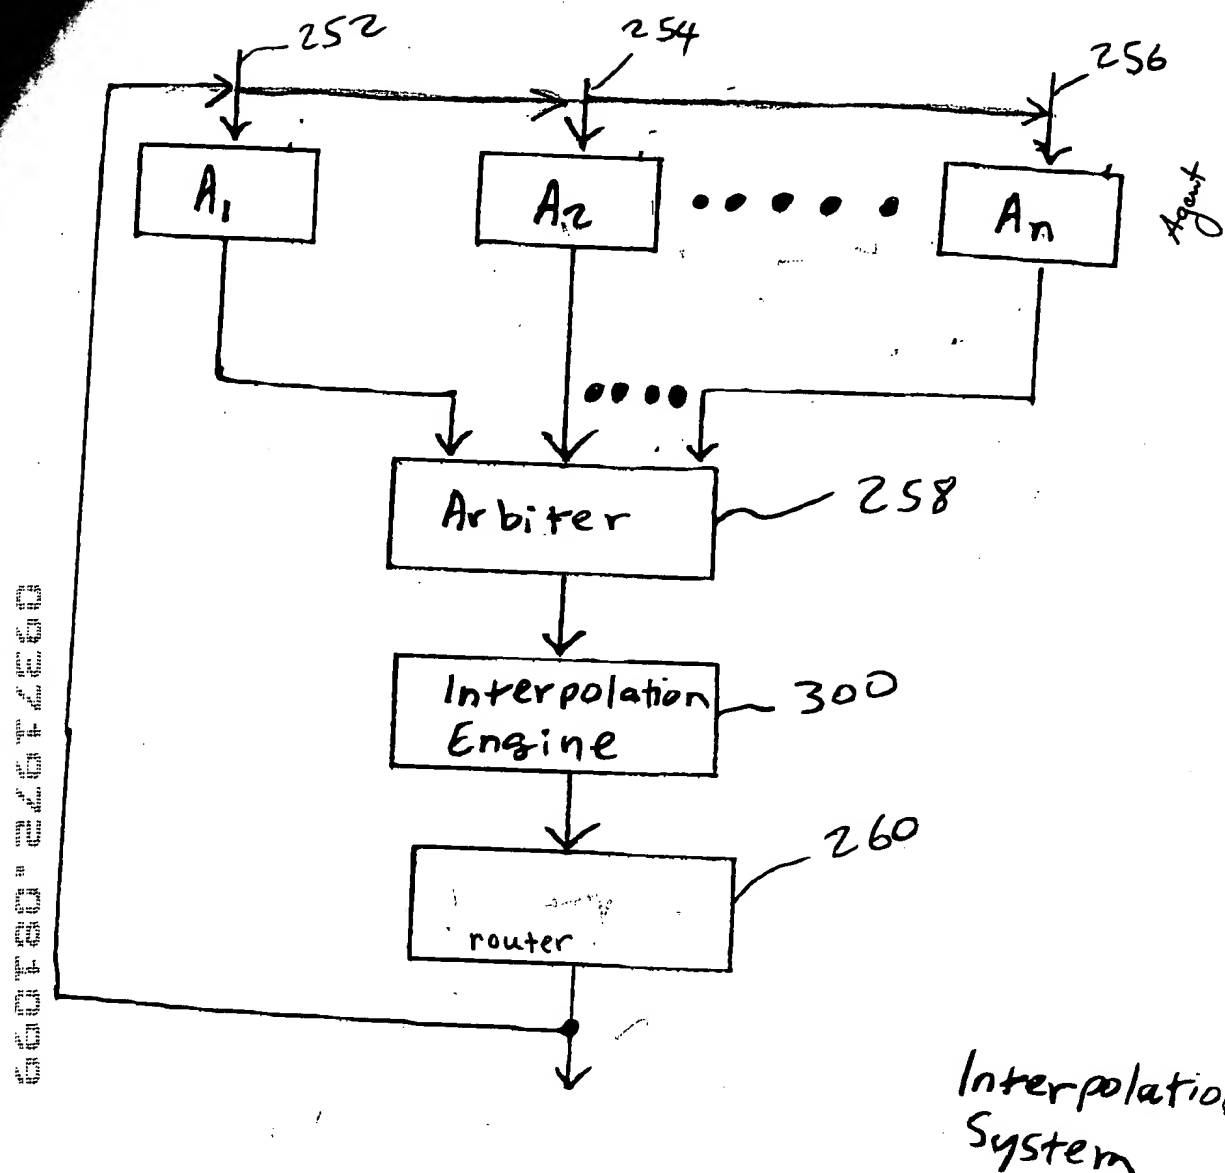 252
254
256
A1
A2
An
Agent
Arbiter
258
Interpolation
Engine
300
260
router
Interpolation
System